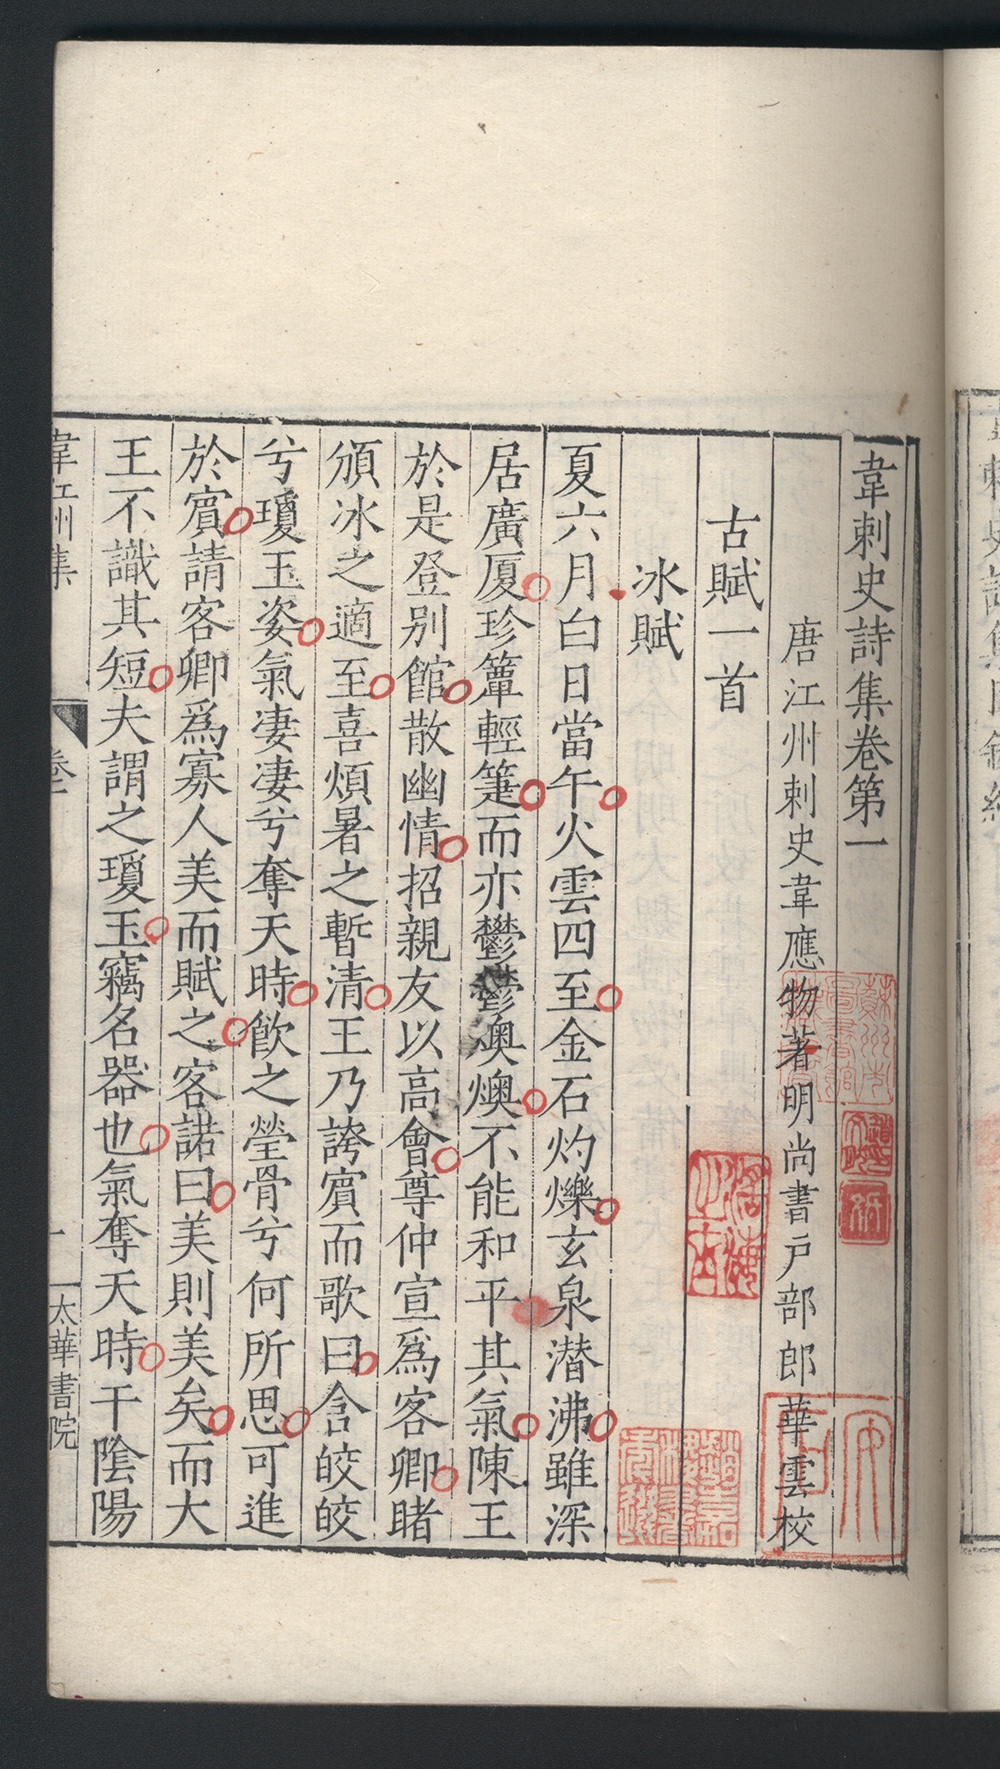 韋刺史詩集卷第一
唐江州刺史韋應物著明尚書戶部郎華雲校
古賦一首
冰賦
夏六月白日當午火雲四至金石灼爍玄泉潛沸雖深
居廣厦珍簟輕箑而亦鬱鬱燠燠不能和平其氣陳王
於是登别館散幽情招親友以高會尊仲宣爲客卿睹
頒冰之適至喜煩暑之暫清王乃誇賓而歌曰含皎皎
兮瓊玉姿氣凄凄兮奪天時飲之瑩骨兮何所思可進
於賓請客卿爲寡人美而賦之客諾曰美則美矣而大
王不識其短夫謂之瓊玉竊名器也氣奪天時干陰陽
韋江州集
卷一
一
太華書院